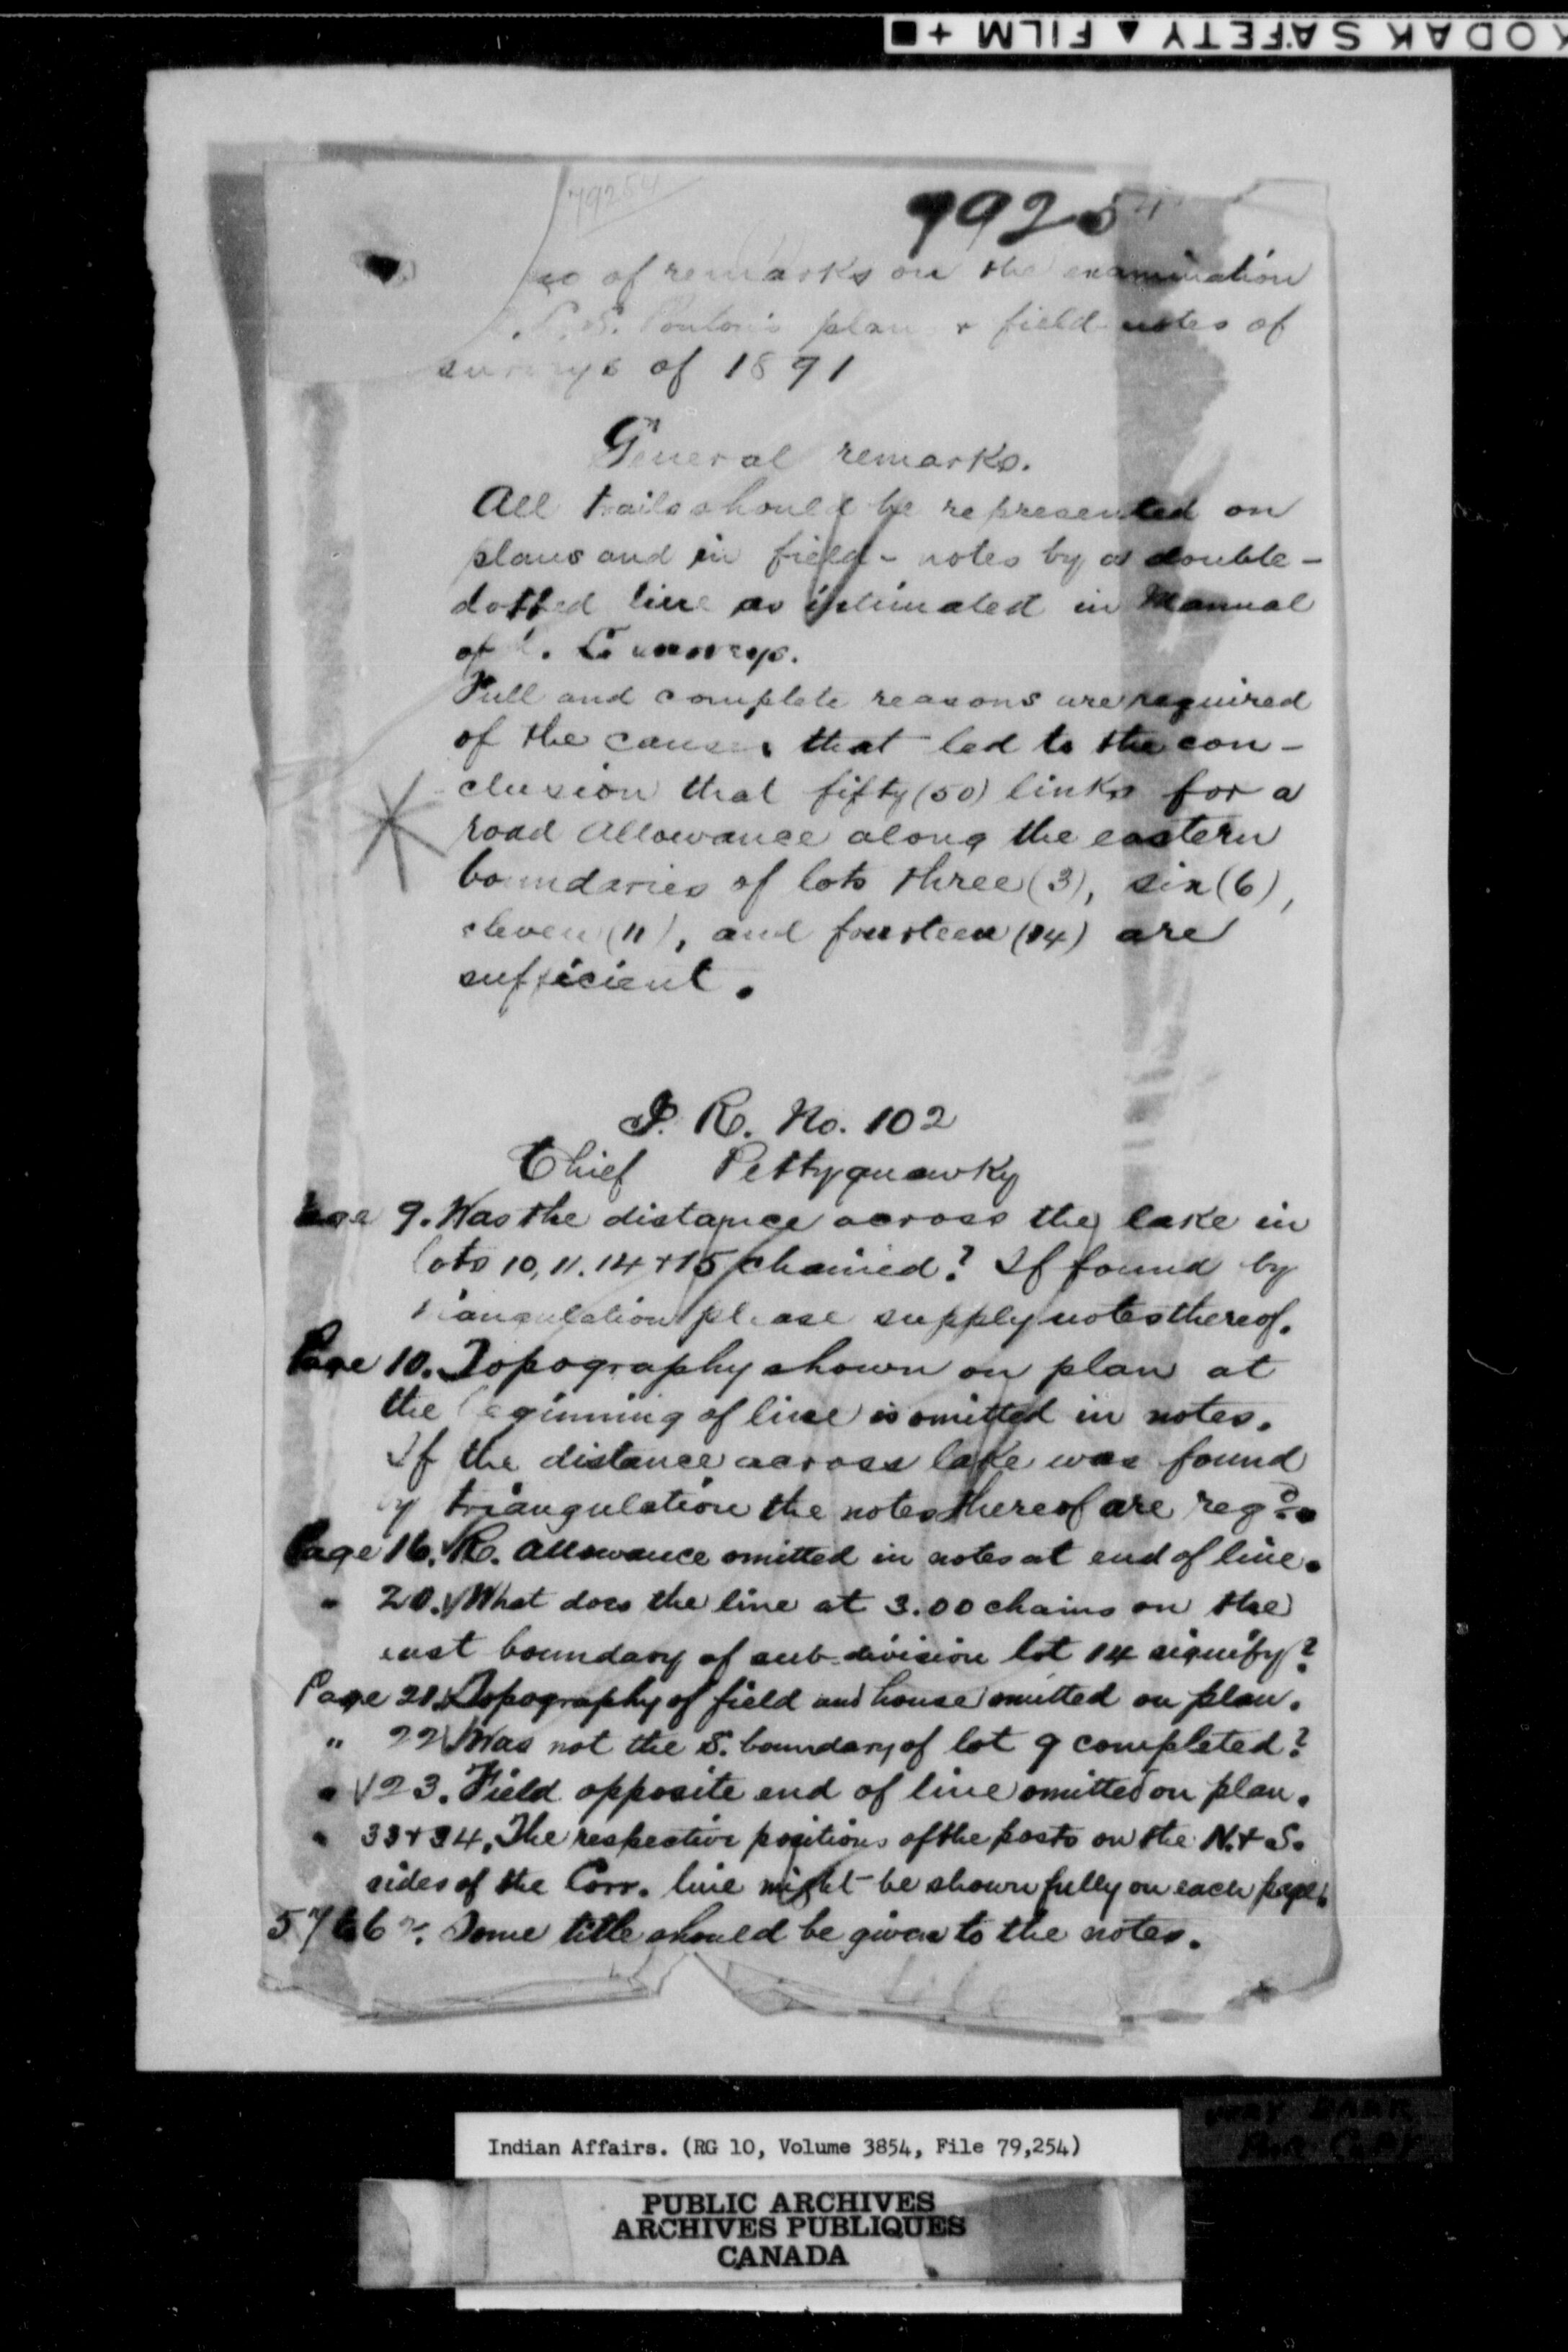 KODAK SAFETY ▲ FILM + ■
79254
79254
of remarks on the examination
Ponton's plan & field notes of
surveys of 1891
General remarks.
All trails should be represented on
plans and in field-notes by a double-
dotted line as intimated in Manual
of Surveys.
Full and complete reasons are required
of the causes that led to the con-
clusion that fifty (50) links for a
road Allowance along the eastern
boundaries of lots three (3), six (6),
eleven (11), and fourteen (14) are
sufficient.
I. R. No. 102
Chief Pettyquawky
Page 9. Was the distance across the lake in
lots 10, 11, 14 & 15 chained? If found by
triangulation please supply notes thereof.
Page 10. Topography shown on plan at
the beginning of line is omitted in notes.
If the distance across lake was found
by triangulation the notes thereof are reqd.
Page 16. R. Allowance omitted in notes at end of line.
" 20. What does the line at 3.00 chains on the
east boundary of sub-division lot 14 signify?
Page 21. Topography of field and house omitted on plan.
" 22 Was not the S. boundary of lot 9 completed?
" 23. Field opposite end of line omitted on plan.
" 33 & 34. The respective positions of the posts on the N. & S.
sides of the Corr. line might be shown fully on each page.
Some title should be given to the notes.
Indian Affairs. (RG 10, Volume 3854, File 79,254)
PUBLIC ARCHIVES
ARCHIVES PUBLIQUES
CANADA